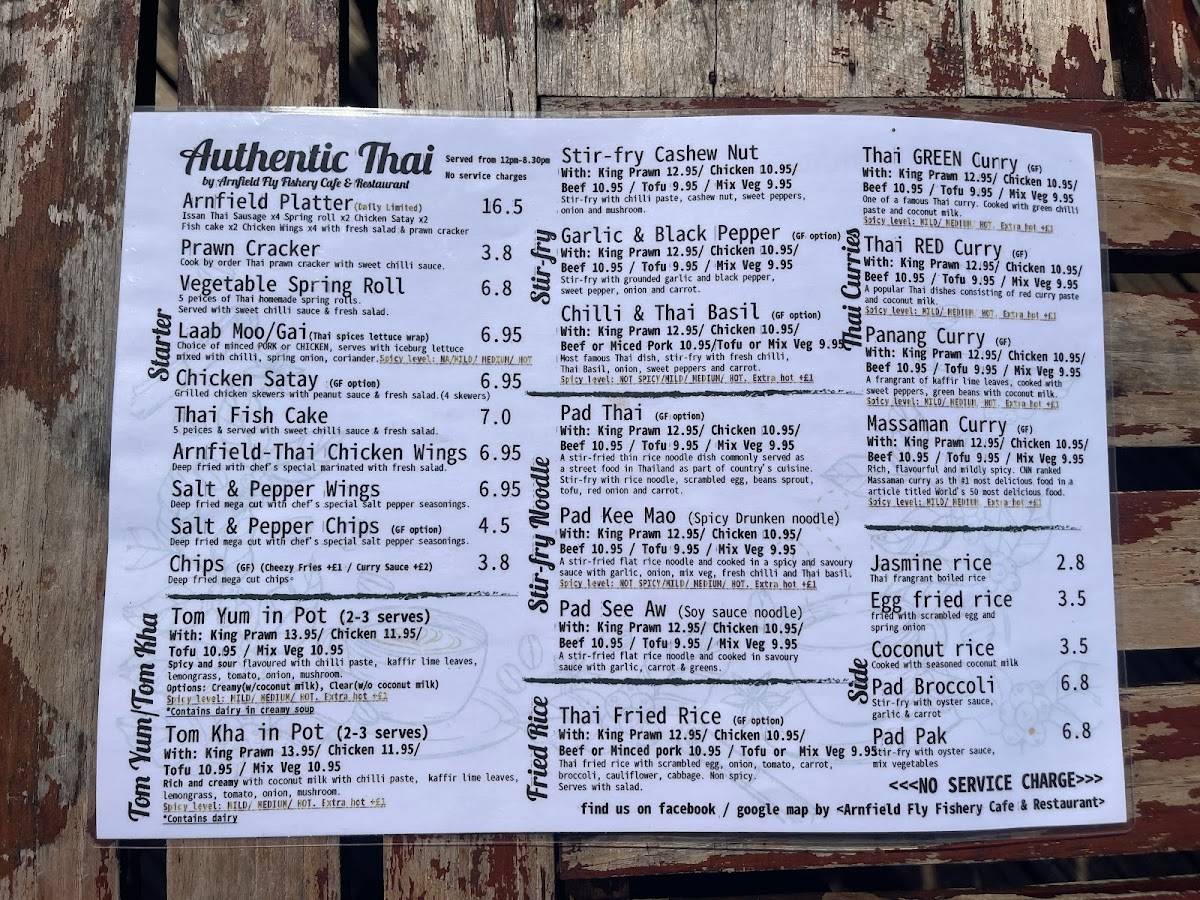 Authentic Thai
by Arnfield Fly Fishery Cafe & Restaurant
Served from 12pm-8.30pm
No service charges
Starter
Arnfield Platter(Daily Limited) 16.5
Issan Thai Sausage x4 Spring roll x2 Chicken Satay x2
Fish cake x2 Chicken Wings x4 with fresh salad & prawn cracker
Prawn Cracker 3.8
Cook by order Thai prawn cracker with sweet chilli sauce.
Vegetable Spring Roll 6.8
5 peices of Thai homemade spring rolls.
Served with sweet chilli sauce & fresh salad.
Laab Moo/Gai(Thai spices lettuce wrap) 6.95
Choice of minced PORK or CHICKEN, serves with iceburg lettuce
mixed with chilli, spring onion, coriander.Spicy level: NA/MILD/ MEDIUM/ HOT
Chicken Satay (GF option) 6.95
Grilled chicken skewers with peanut sauce & fresh salad.(4 skewers)
Thai Fish Cake 7.0
5 peices & served with sweet chilli sauce & fresh salad.
Arnfield-Thai Chicken Wings 6.95
Deep fried with chef's special marinated with fresh salad.
Salt & Pepper Wings 6.95
Deep fried mega cut with chef's special salt pepper seasonings.
Salt & Pepper Chips (GF option) 4.5
Deep fried mega cut with chef's special salt pepper seasonings.
Chips (GF) (Cheezy Fries +£1 / Curry Sauce +£2) 3.8
Deep fried mega cut chips*
Tom Yum/Tom Kha
Tom Yum in Pot (2-3 serves)
With: King Prawn 13.95/ Chicken 11.95/
Tofu 10.95 / Mix Veg 10.95
Spicy and sour flavoured with chilli paste, kaffir lime leaves,
lemongrass, tomato, onion, mushroom.
Options: Creamy(w/coconut milk), Clear(w/o coconut milk)
Spicy level: MILD/ MEDIUM/ HOT. Extra hot +£1
*Contains dairy in creamy soup
Tom Kha in Pot (2-3 serves)
With: King Prawn 13.95/ Chicken 11.95/
Tofu 10.95 / Mix Veg 10.95
Rich and creamy with coconut milk with chilli paste, kaffir lime leaves,
lemongrass, tomato, onion, mushroom.
Spicy level: MILD/ MEDIUM/ HOT. Extra hot +£1
*Contains dairy
Stir-fry
Stir-fry Cashew Nut
With: King Prawn 12.95/ Chicken 10.95/
Beef 10.95 / Tofu 9.95 / Mix Veg 9.95
Stir-fry with chilli paste, cashew nut, sweet peppers,
onion and mushroom.
Garlic & Black Pepper (GF option)
With: King Prawn 12.95/ Chicken 10.95/
Beef 10.95 / Tofu 9.95 / Mix Veg 9.95
Stir-fry with grounded garlic and black pepper,
sweet pepper, onion and carrot.
Chilli & Thai Basil (GF option)
With: King Prawn 12.95/ Chicken 10.95/
Beef or Miced Pork 10.95/Tofu or Mix Veg 9.95
Most famous Thai dish, stir-fry with fresh chilli,
Thai Basil, onion, sweet peppers and carrot.
Spicy level: NOT SPICY/MILD/ MEDIUM/ HOT. Extra hot +£1
Stir-fry Noodle
Pad Thai (GF option)
With: King Prawn 12.95/ Chicken 10.95/
Beef 10.95 / Tofu 9.95 / Mix Veg 9.95
A stir-fried thin rice noodle dish commonly served as
a street food in Thailand as part of country's cuisine.
Stir-fry with rice noodle, scrambled egg, beans sprout,
tofu, red onion and carrot.
Pad Kee Mao (Spicy Drunken noodle)
With: King Prawn 12.95/ Chicken 10.95/
Beef 10.95 / Tofu 9.95 / Mix Veg 9.95
A stir-fried flat rice noodle and cooked in a spicy and savoury
sauce with garlic, onion, mix veg, fresh chilli and Thai basil.
Spicy level: NOT SPICY/MILD/ MEDIUM/ HOT. Extra hot +£1
Pad See Aw (Soy sauce noodle)
With: King Prawn 12.95/ Chicken 10.95/
Beef 10.95 / Tofu 9.95 / Mix Veg 9.95
A stir-fried flat rice noodle and cooked in savoury
sauce with garlic, carrot & greens.
Fried Rice
Thai Fried Rice (GF option)
With: King Prawn 12.95/ Chicken 10.95/
Beef or Minced pork 10.95 / Tofu or Mix Veg 9.95
Thai fried rice with scrambled egg, onion, tomato, carrot,
broccoli, cauliflower, cabbage. Non spicy.
Serves with salad.
Thai Curries
Thai GREEN Curry (GF)
With: King Prawn 12.95/ Chicken 10.95/
Beef 10.95 / Tofu 9.95 / Mix Veg 9.95
One of a famous Thai curry. Cooked with green chilli
paste and coconut milk.
Spicy level: MILD/ MEDIUM/ HOT. Extra hot +£1
Thai RED Curry (GF)
With: King Prawn 12.95/ Chicken 10.95/
Beef 10.95 / Tofu 9.95 / Mix Veg 9.95
A popular Thai dishes consisting of red curry paste
and coconut milk.
Spicy level: MILD/ MEDIUM/ HOT. Extra hot +£1
Panang Curry (GF)
With: King Prawn 12.95/ Chicken 10.95/
Beef 10.95 / Tofu 9.95 / Mix Veg 9.95
A frangrant of kaffir lime leaves, cooked with
sweet peppers, green beans with coconut milk.
Spicy level: MILD/ MEDIUM/ HOT. Extra hot +£1
Massaman Curry (GF)
With: King Prawn 12.95/ Chicken 10.95/
Beef 10.95 / Tofu 9.95 / Mix Veg 9.95
Rich, flavourful and mildly spicy. CNN ranked
Massaman curry as th #1 most delicious food in a
article titled World's 50 most delicious food.
Spicy level: MILD/ MEDIUM/ HOT. Extra hot +£1
Side
Jasmine rice 2.8
Thai frangrant boiled rice
Egg fried rice 3.5
fried with scrambled egg and
spring onion
Coconut rice 3.5
Cooked with seasoned coconut milk
Pad Broccoli 6.8
Stir-fry with oyster sauce,
garlic & carrot
Pad Pak 6.8
Stir-fry with oyster sauce,
mix vegetables
<<<NO SERVICE CHARGE>>>
find us on facebook / google map by <Arnfield Fly Fishery Cafe & Restaurant>